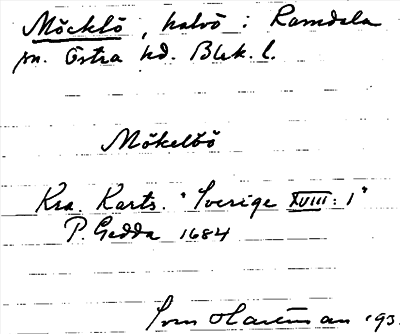 Möcklö, halvö i Ramdala
sn. Östra hd. Blek. l.
Mökelöö
Kra. Karts. "Sverige XVIII:1"
P. Gedda 1684
Sven